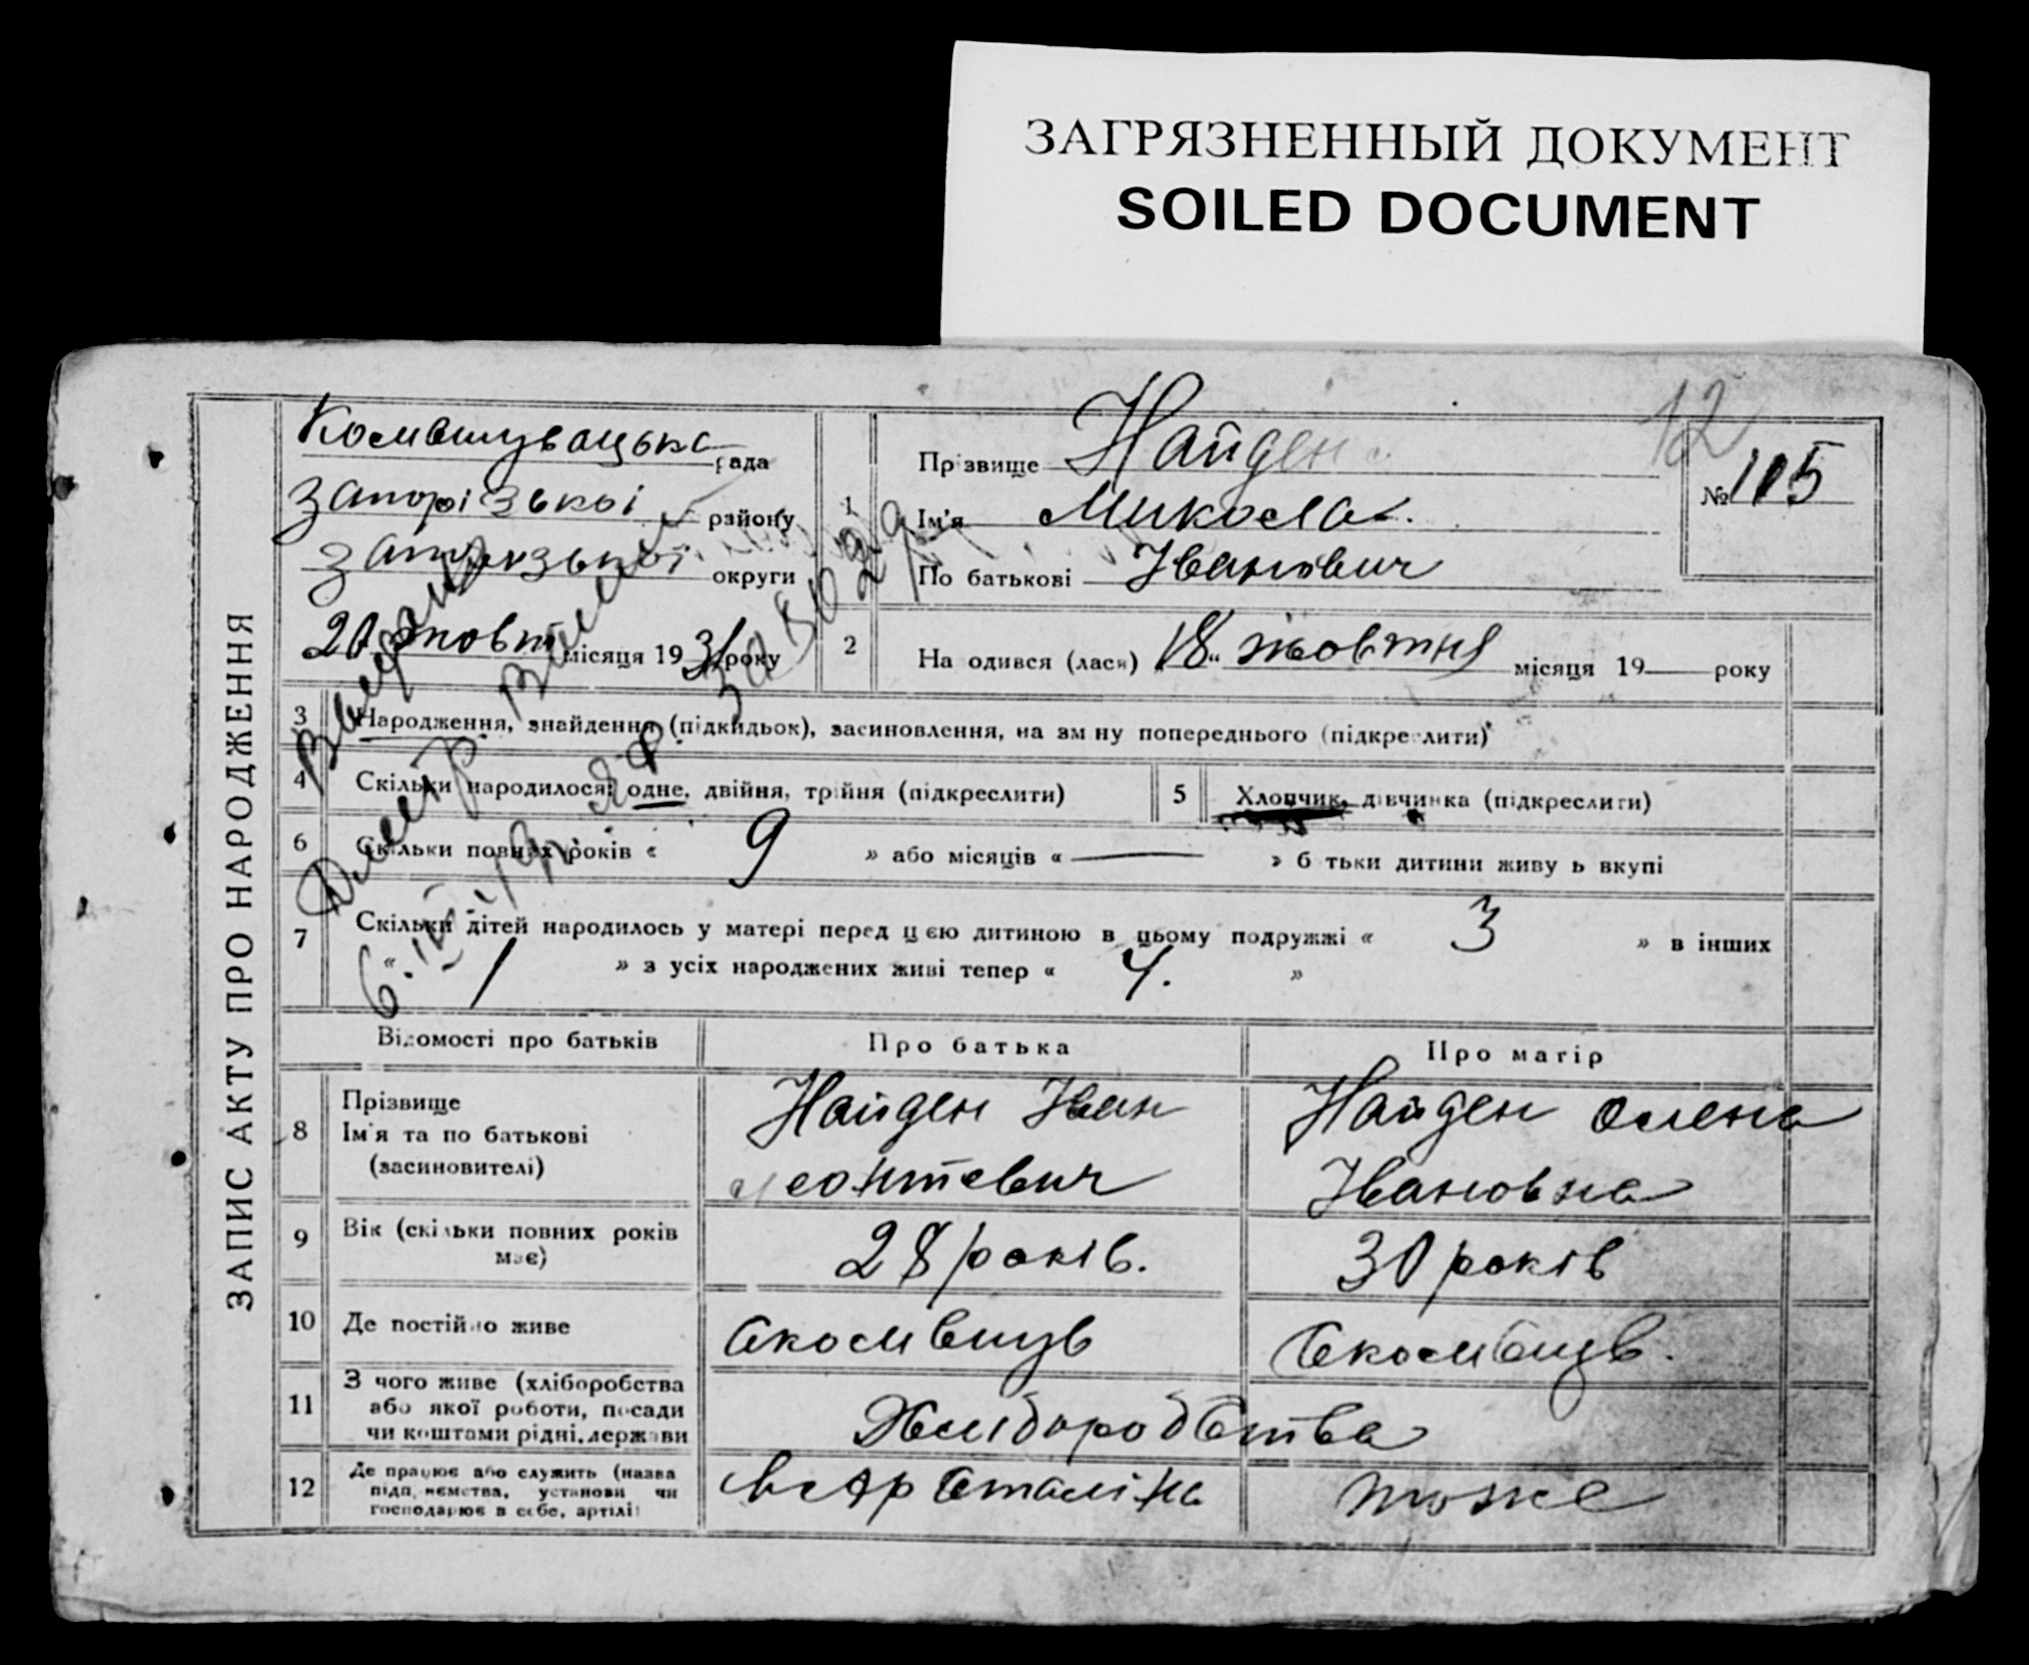 ЗАГРЯЗНЕННЫЙ ДОКУМЕНТ
SOILED DOCUMENT
12
ЗАПИС АКТУ ПРО НАРОДЖЕННЯ
Комишувацька рада
Запорізької району
округи
20 жовт місяця 1931 року
1 Прізвище Найден
Ім'я Микола
По батькові Іванович
№ 105
2 На одився (лася) 18 " жовтня місяця 19 — року
3 Народження, знайдення (підкидьок), засиновлення, на зм ну попереднього (підкреслити)
4 Скільки народилося: одне, двійня, трійня (підкреслити)
5 Хлопчик, дівчинка (підкреслити)
6 Скільки повних років « 9 » або місяців « — » б тьки дитини живу ь вкупі
7 Скільки дітей народилось у матері перед цією дитиною в цьому подружжі « 3 » в інших
« 1 » з усіх народжених живі тепер « 4. »
Відомості про батьків Про батька Про матір
8 Прізвище
Ім'я та по батькові
(засиновителі)
Найден Іван
Леонтевич
Найден Олена
Івановна
9 Вік (скільки повних років
має)
28 років.
30 років
10 Де постійно живе
с комишув
с комишув.
11 З чого живе (хліборобства
або якої роботи, посади
чи коштами рідні, держави
Хлиборобства
12 Де працює або служить (назва
підп.иємства, установи чи
господарює в себе, артілі
Сталіна
тоже